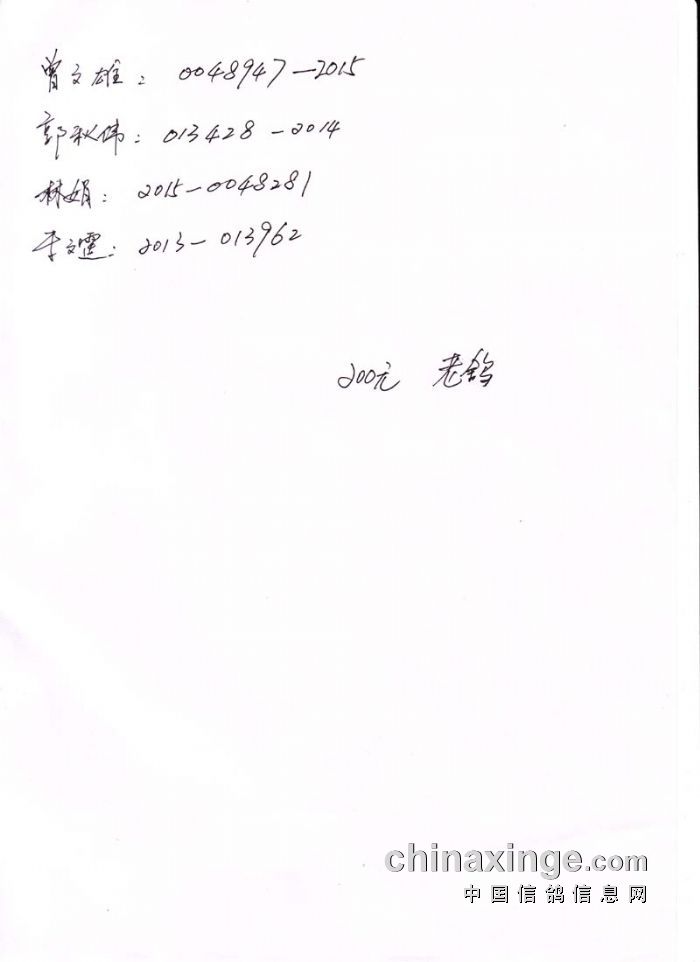 曾文雄：0048947-2015
郭秋伟：013428-2014
林娟：2015-0048281
于文霆：2013-013962
200元 老鸽
chinaxinge.com
中国信鸽信息网